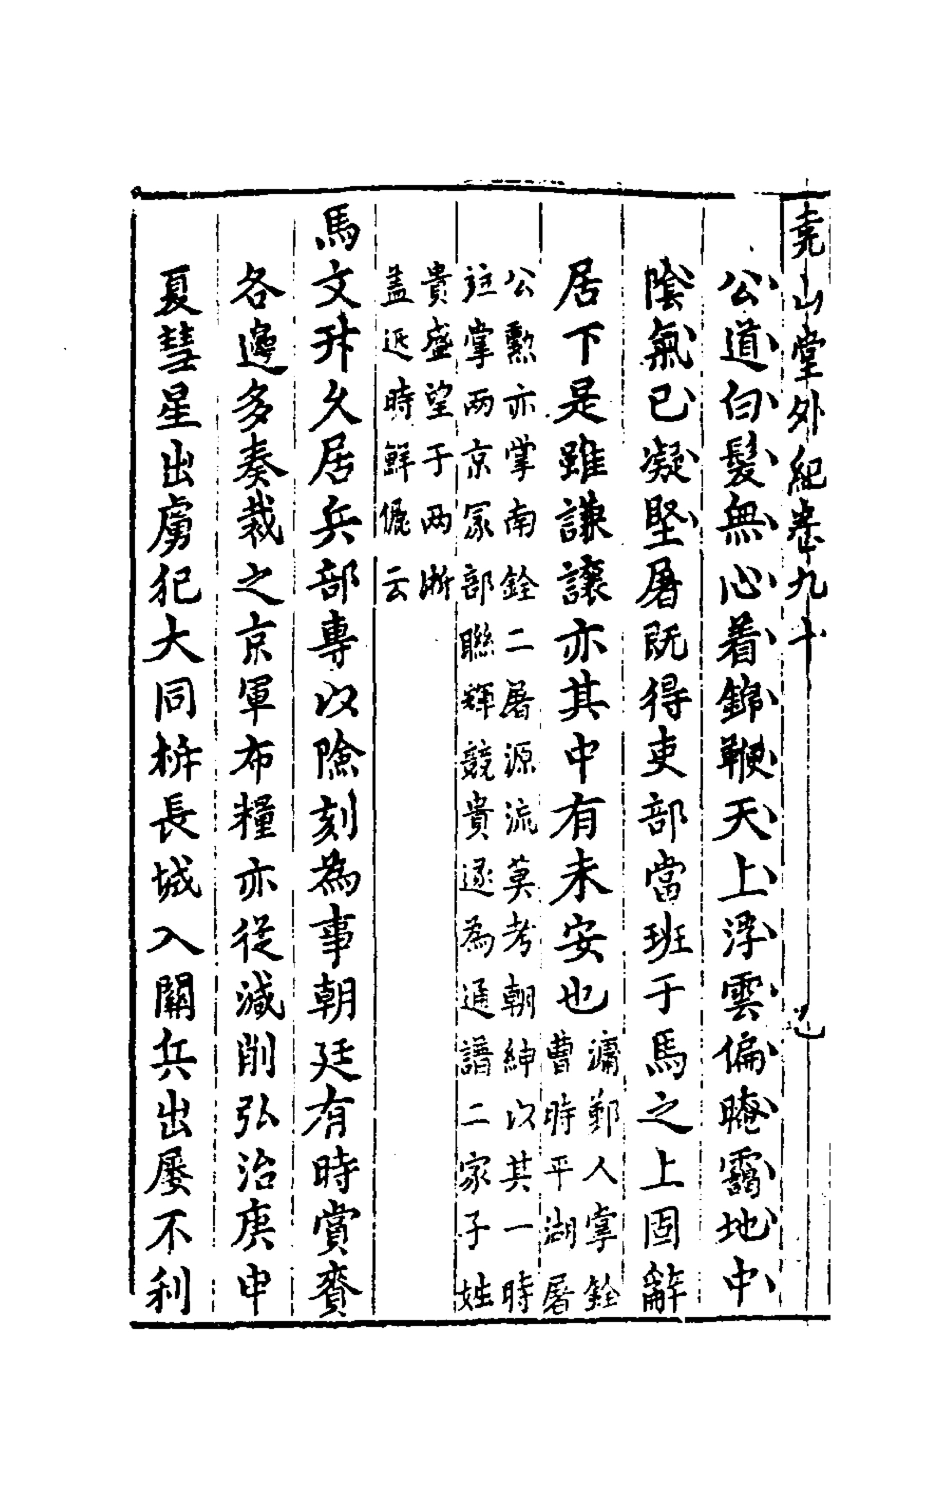 尭山堂外紀卷九十
公道白髮無心着錦鞭天上浮雲偏晻靄地中
陰氣已凝堅屠既得吏部當班于馬之上固辭
居下是雖謙讓亦其中有未安也滽鄞人掌銓
曹時平湖屠
公勳亦掌南銓二屠源流莫考朝紳以其一時
往掌两京冡部聯輝競貴遂為通譜二家子姓
貴盛望于两浙
盖近時鮮儷云
馬文升久居兵部專以險刻為事朝廷有時賞賚
各邊多奏裁之京軍布糧亦從減削弘治庚申
夏彗星出虜犯大同拆長城入關兵出屢不利